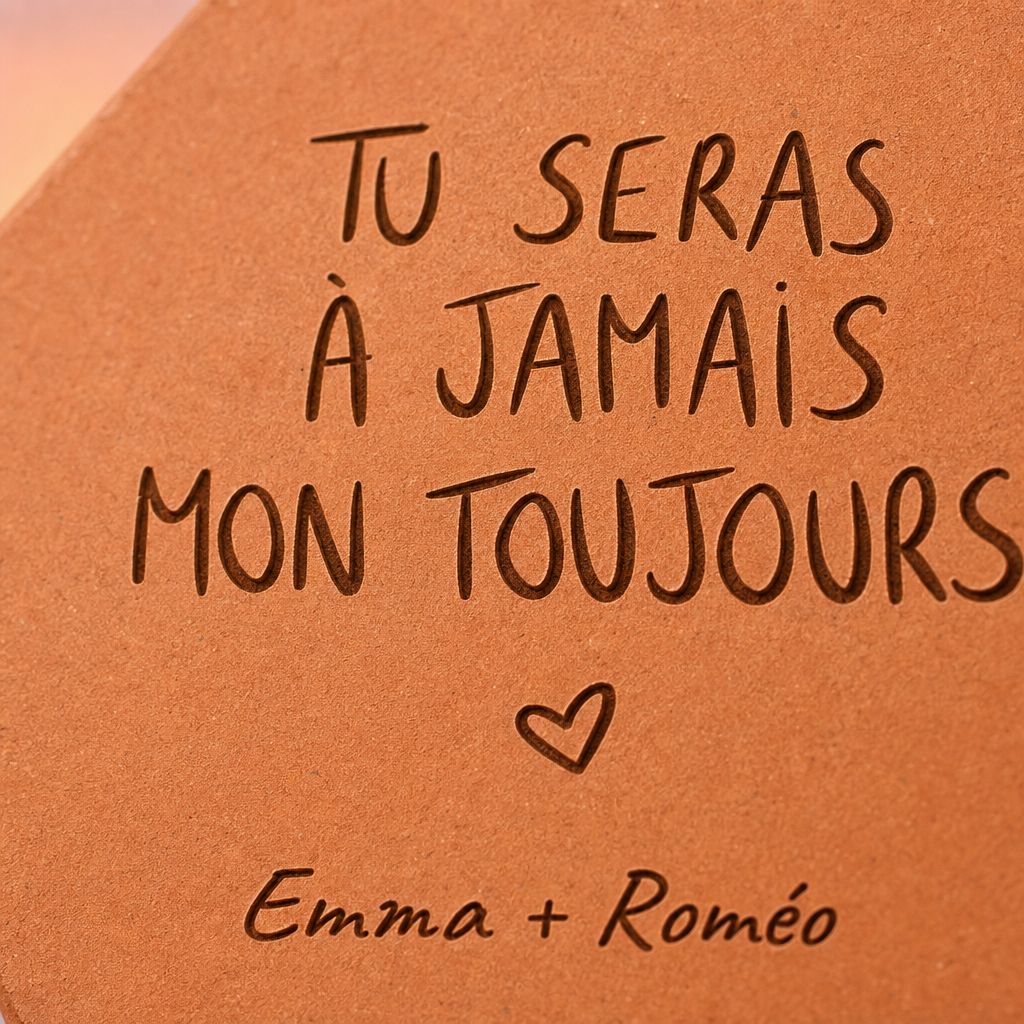 TU SERAS
À JAMAIS
MON TOUJOURS
Emma + Roméo